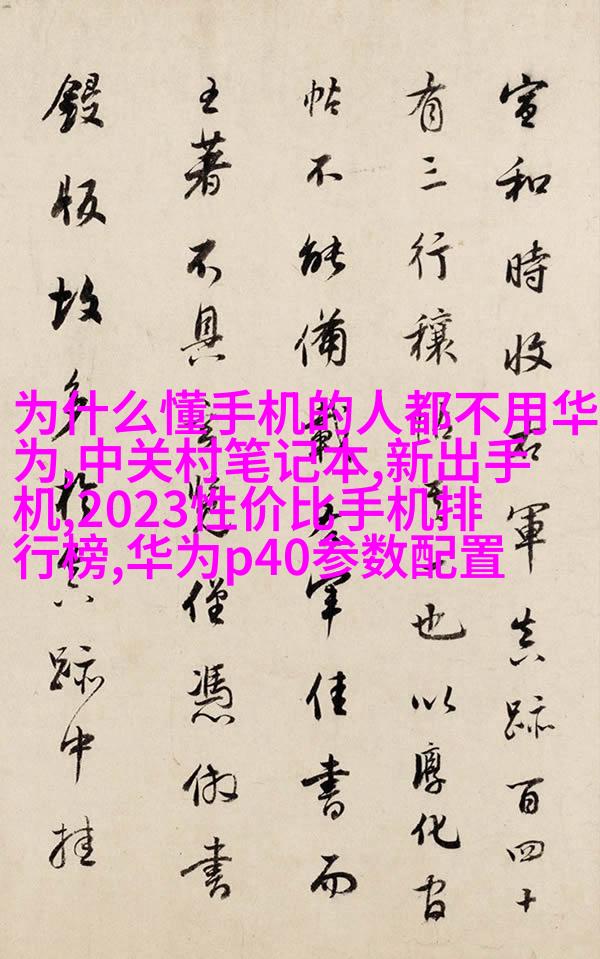 为什么懂手机的人都不用华
为,中关村笔记本,新出手
机,2023性价比手机排
行榜,华为p40参数配置
宣和時收右軍真跡百四十
有三行穰也以淳化官
帖不能備載右軍佳書而
王著不具覽僅憑倣書
鋟版故多於真跡中挂